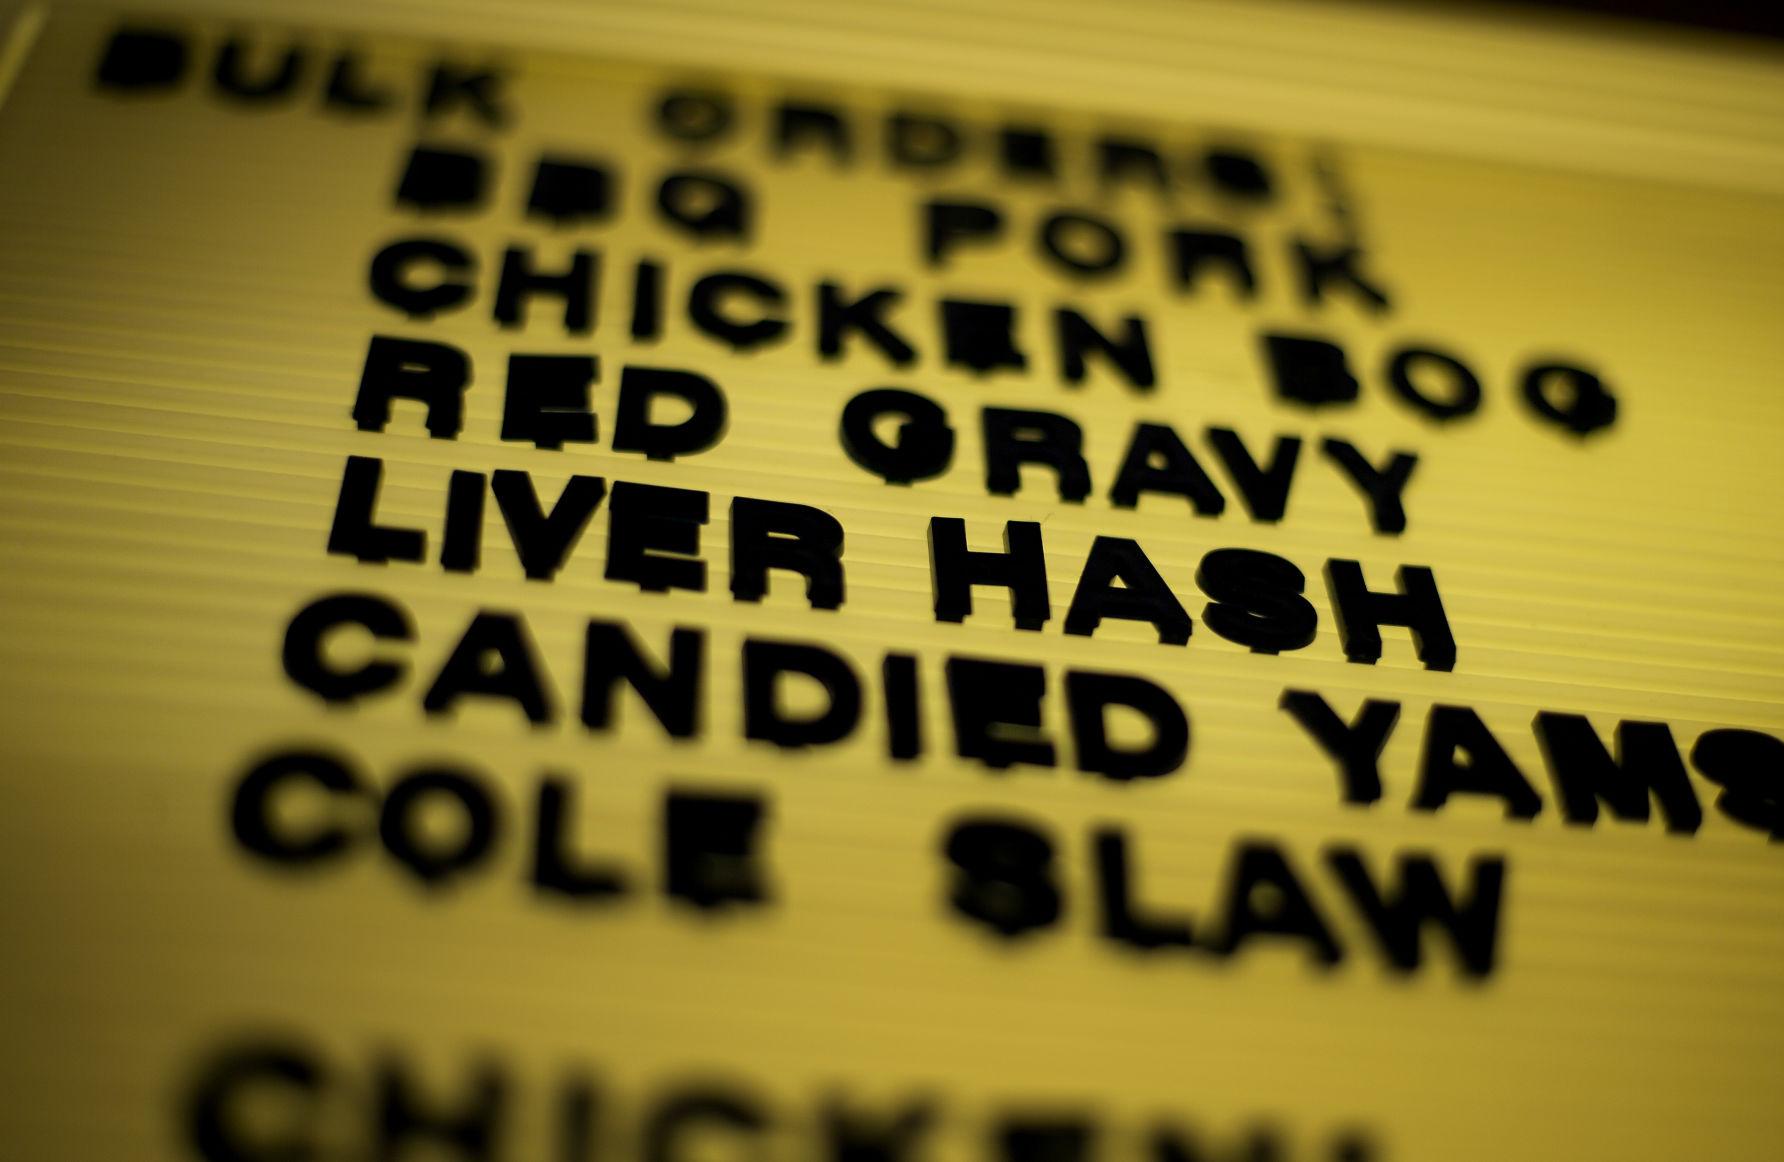 BULK ORDERS:
BBQ PORK
CHICKEN BOQ
RED GRAVY
LIVER HASH
CANDIED YAMS
COLE SLAW
CHICKEN